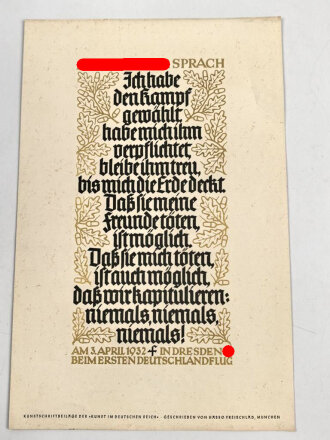 SPRACH
Ich habe
den Kampf
gewählt,
habe mich ihm
verpflichtet,
bleibe ihm treu,
bis mich die Erde deckt.
Daß sie meine
Freunde töten,
ist möglich.
Daß sie mich töten,
ist auch möglich,
daß wir kapitulieren:
niemals, niemals,
niemals!
AM 3. APRIL 1932 IN DRESDEN
BEIM ERSTEN DEUTSCHLANDFLUG
KUNSTSCHRIFTBEILAGE DER »KUNST IM DEUTSCHEN REICH« · GESCHRIEBEN VON HASSO FREISCHLAD, MÜNCHEN